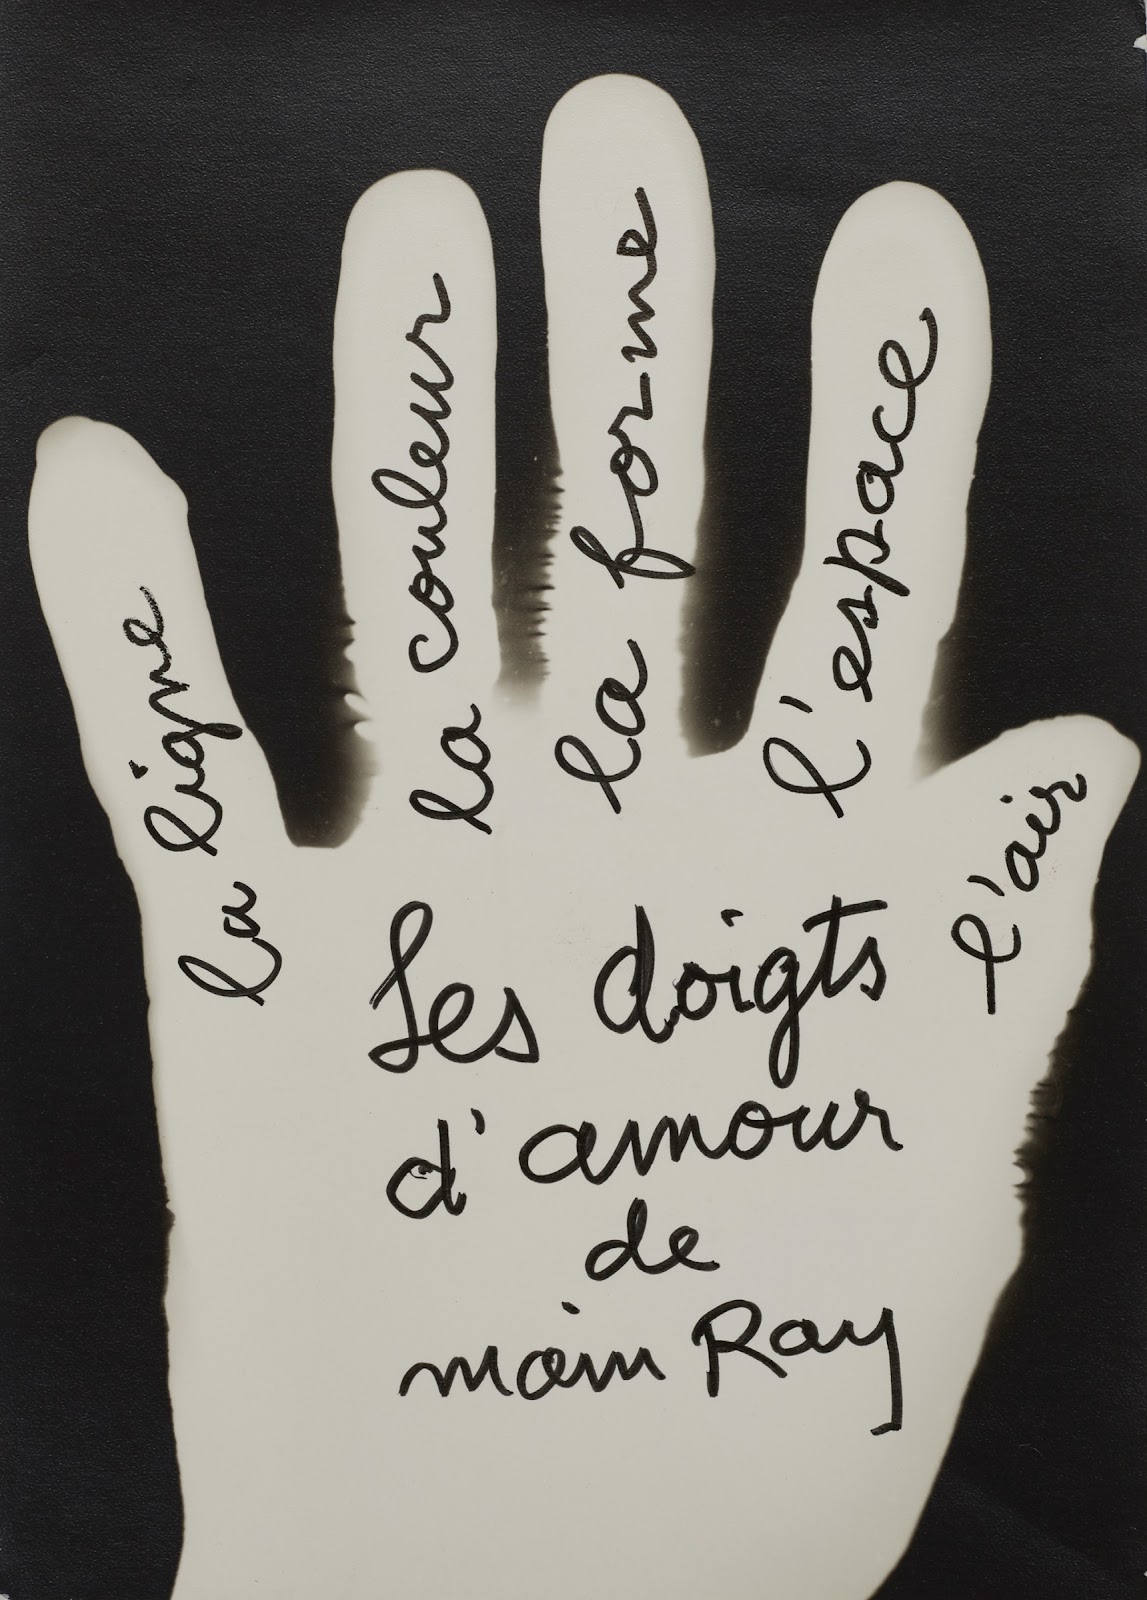 la ligne
la couleur
la forme
l'espace
l'air
Les doigts
d'amour
de
main Ray